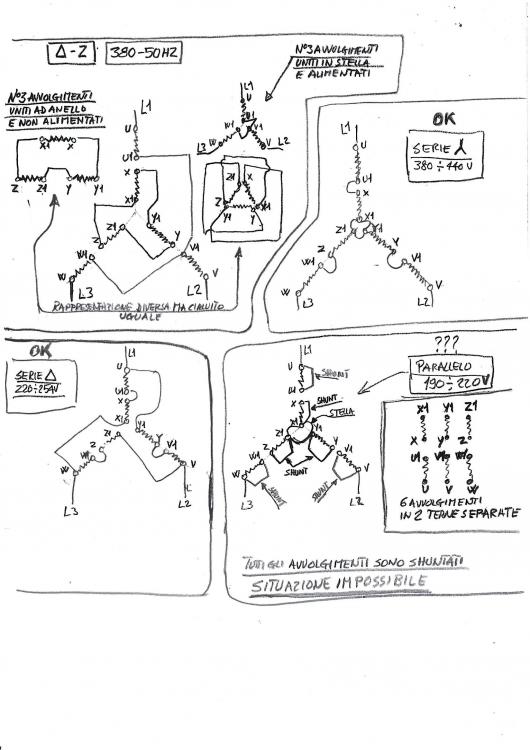 Δ-Z
380-50HZ
N°3 AVVOLGIMENTI
UNITI IN STELLA
E ALIMENTATI
N°3 AVVOLGIMENTI
UNITI AD ANELLO
E NON ALIMENTATI
X1 X
Z Z1 Y Y1
L1
U
U1
X
Z Z1
Y1 Y
W V1 V
L3 L2
L1
U
U1
W W1 V1 V
L3 L2
Z1 X
Z X1
Y1 Y
RAPPRESENTAZIONE DIVERSA MA CIRCUITO
UGUALE
OK
SERIE Y
380÷440V
L1
U
U1
X
X1
Z1 Y1
Z Y
W1 V1
W V
L3 L2
OK
SERIE Δ
220÷254V
L1
U
U1
X
X1
Z1 Y1
Z Y
W1 V1
W V
L3 L2
???
PARALLELO
190÷220V
L1
U
SHUNT
U1
X
SHUNT
X1
STELLA
Z1 Y1
Z Y
SHUNT
W1 V1
W V
SHUNT
SHUNT
L3 L2
X1 Y1 Z1
X Y Z
U1 V1 W1
U V W
6 AVVOLGIMENTI
IN 2 TERNE SEPARATE
TUTTI GLI AVVOLGIMENTI SONO SHUNTATI
SITUAZIONE IMPOSSIBILE